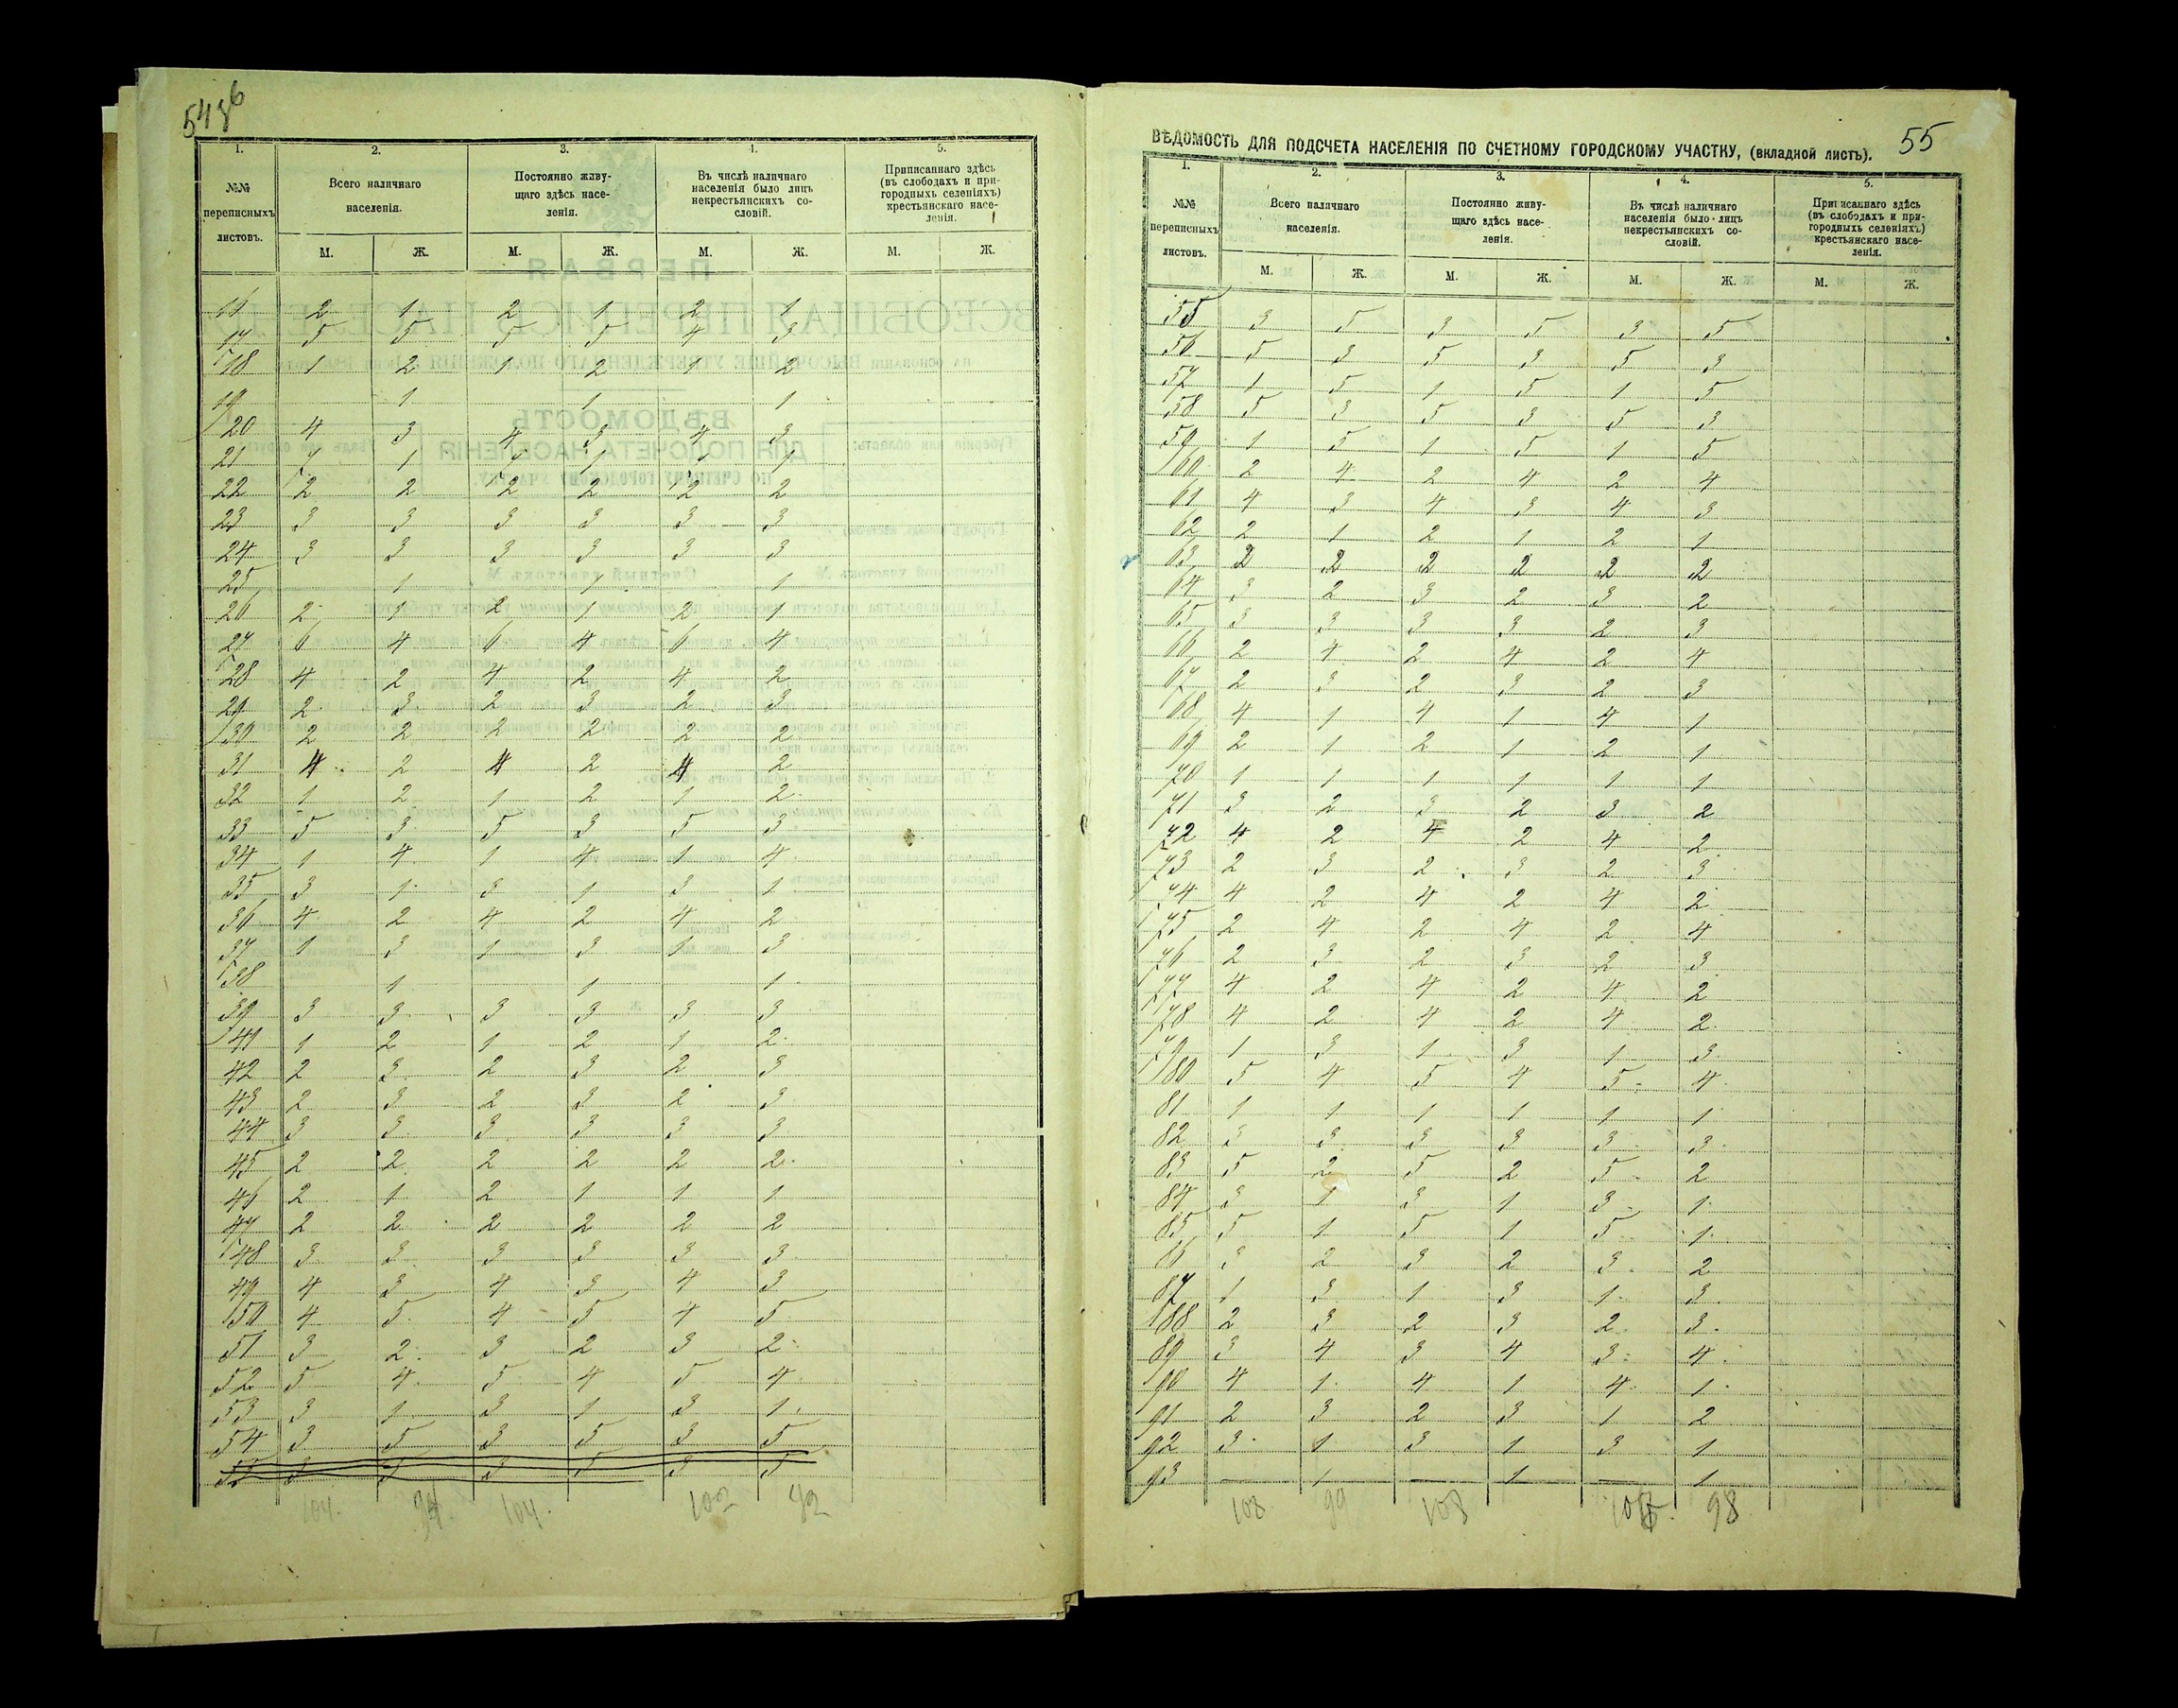 54 об
1. 2. 3. 4. 5.
№№ переписныхъ листовъ.
Всего наличнаго населенія.
Постоянно живу-
щаго здѣсь насе-
ленія.
Въ числѣ наличнаго
населенія было лицъ
некрестьянскихъ со-
словій.
Приписаннаго здѣсь
(въ слободахъ и при-
городныхъ селеніяхъ)
крестьянскаго насе-
ленія.
М. Ж. М. Ж. М. Ж. М. Ж.
16 2 1 2 1 2 1
17 5 5 5 5 4 3
18 1 2 1 2 1 2
19 1 1 1
20 4 3 4 3 4 3
21 7 1 7 1 7 1
22 2 2 2 2 2 2
23 3 3 3 3 3 3
24 3 3 3 3 3 3
25 1 1 1
26 2 1 2 1 2 1
27 6 4 6 4 6 4
28 4 2 4 2 4 2
29 2 3 2 3 2 3
30 2 2 2 2 2 2
31 4 2 4 2 4 2
32 1 2 1 2 1 2
33 5 3 5 3 5 3
34 1 4 1 4 1 4
35 3 1 3 1 3 1
36 4 2 4 2 4 2
37 1 3 1 3 1 3
38 1 1 1
39 3 3 3 3 3 3
41 1 2 1 2 1 2
42 2 3 2 3 2 3
43 2 3 2 3 2 3
44 3 3 3 3 3 3
45 2 2 2 2 2 2
46 2 1 2 1 1 1
47 2 2 2 2 2 2
48 3 3 3 3 3 3
49 4 3 4 3 4 3
50 4 5 4 5 4 5
51 3 2 3 2 3 2
52 5 4 5 4 5 4
53 3 1 3 1 3 1
54 3 5 3 5 3 5
55 3 5 3 5 3 5
104. 104. 102 92
55
ВѢДОМОСТЬ ДЛЯ ПОДСЧЕТА НАСЕЛЕНІЯ ПО СЧЕТНОМУ ГОРОДСКОМУ УЧАСТКУ, (вкладной листъ).
1. 2. 3. 4. 5.
№№ переписныхъ листовъ.
Всего наличнаго населенія.
Постоянно живу-
щаго здѣсь насе-
ленія.
Въ числѣ наличнаго
населенія было лицъ
некрестьянскихъ со-
словій.
Приписаннаго здѣсь
(въ слободахъ и при-
городныхъ селеніяхъ)
крестьянскаго насе-
ленія.
М. Ж. М. Ж. М. Ж. М. Ж.
55 3 5 3 5 3 5
56 5 3 5 3 5 3
57 1 5 1 5 1 5
58 5 3 5 3 5 3
59 1 5 1 5 1 5
60 2 4 2 4 2 4
61 4 3 4 3 4 3
62 2 1 2 1 2 1
63 2 2 2 2 2 2
64 3 2 3 2 3 2
65 3 3 3 3 2 3
66 2 4 2 4 2 4
67 2 3 2 3 2 3
68 4 1 4 1 4 1
69 2 1 2 1 2 1
70 1 1 1 1 1 1
71 3 2 3 2 3 2
72 4 2 4 2 4 2
73 2 3 2 3 2 3
74 4 2 4 2 4 2
75 2 4 2 4 2 4
76 2 3 2 3 2 3
77 4 2 4 2 4 2
78 4 2 4 2 4 2
79 1 3 1 3 1 3
80 5 4 5 4 5 4
81 1 1 1 1 1 1
82 3 3 3 3 3 3
83 5 2 5 2 5 2
84 3 1 3 1 3 1
85 5 1 5 1 5 1
86 3 2 3 2 3 2
87 1 3 1 3 1 3
88 2 3 2 3 2 3
89 3 4 3 4 3 4
90 4 1 4 1 4 1
91 2 3 2 3 1 2
92 3 1 3 1 3 1
93 — 1 — 1 — 1
108 99 108 106. 98